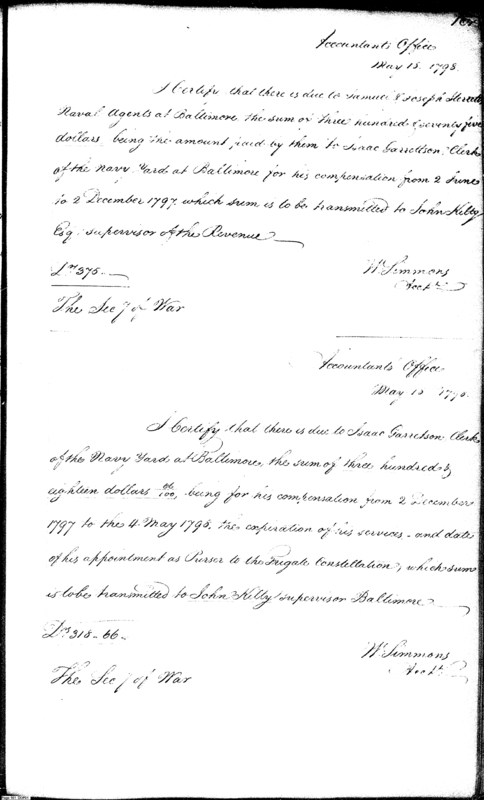 Accountants Office
May 15. 1798.
I Certify that there is due to Samuel & Joseph
Naval Agents at Baltimore the sum of three hundred & seventy five
dollars, being the amount paid by them to Isaac Garrettson, Clerk
of the Navy Yard at Baltimore for his compensation from 2 June
to 2 December 1797, which sum is to be transmitted to John Kilty
Esq. supervisor of the Revenue
Drs 375.
Wm Simmons
Acct
The Secy of War
Accountants Office
May 15 1798.
I Certify that there is due to Isaac Garretson Clerk
of the Navy Yard at Baltimore, the sum of three hundred &
eighteen dollars 66/100, being for his compensation from 2 December
1797 to the 4. May 1798. the experation of his services - and date
of his appointment as Purser to the Frigate Constellation, which sum
is to be transmitted to John Kilty supervisor Baltimore
Drs 318-66-
Wm Simmons
Acct
The Secy of War